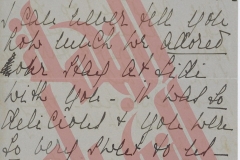 I can never tell you
how much we adored
our stay at Sidi
with you - it was so
delicious & you were
so very sweet to us